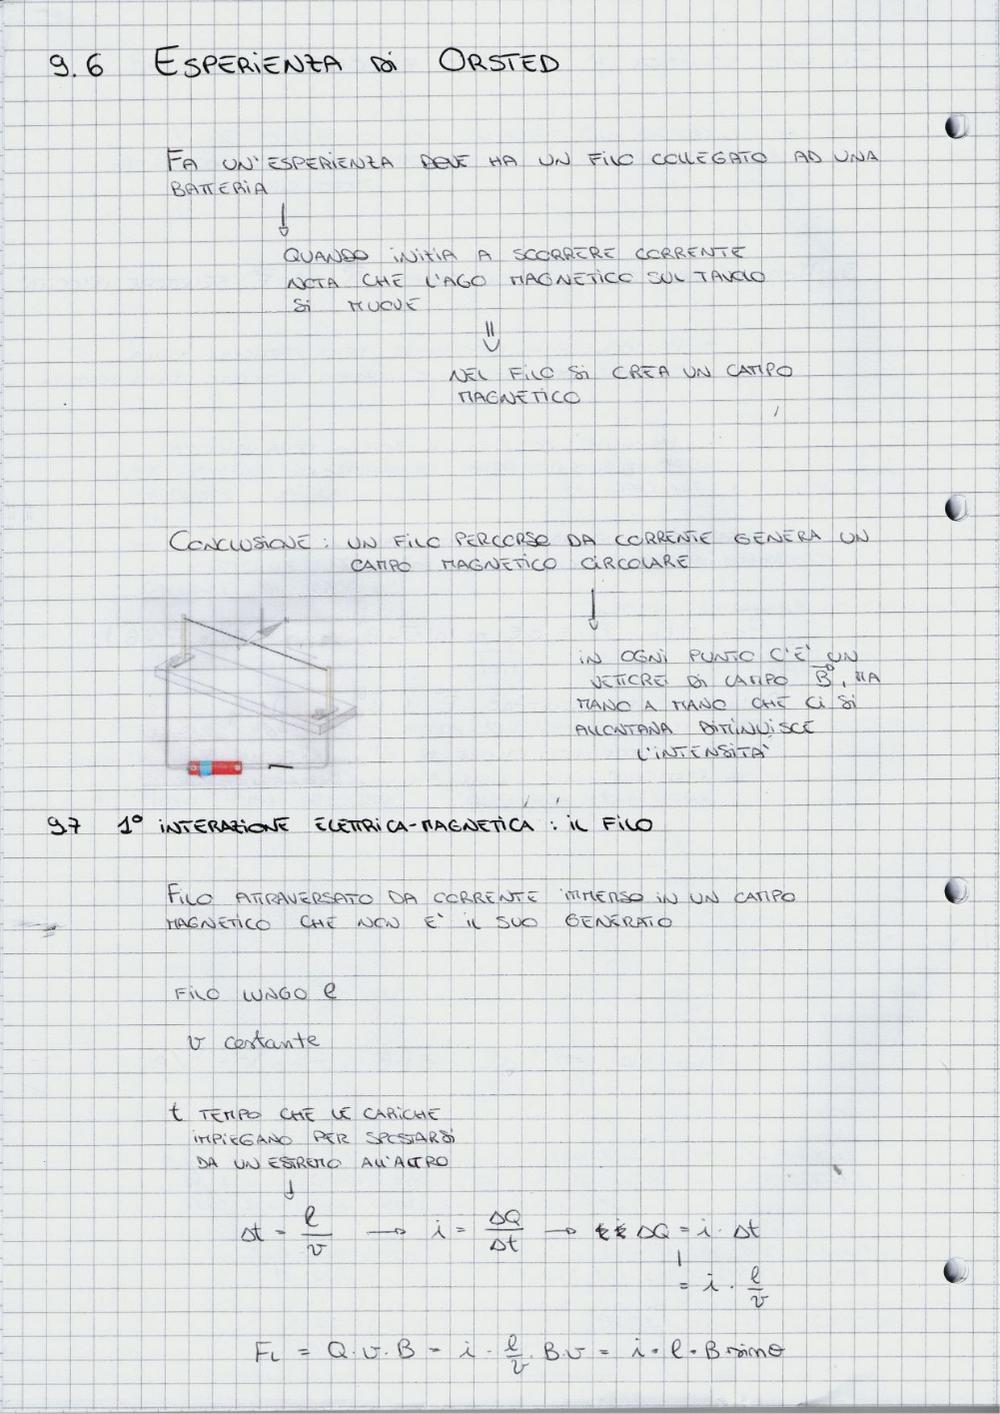 9.6 ESPERIENZA DI ORSTED
FA UN'ESPERIENZA DOVE HA UN FILO COLLEGATO AD UNA
BATTERIA
↓
QUANDO INIZIA A SCORRERE CORRENTE
NOTA CHE L'AGO MAGNETICO SUL TAVOLO
SI MUOVE
⇓
NEL FILO SI CREA UN CAMPO
MAGNETICO
CONCLUSIONE : UN FILO PERCORSO DA CORRENTE GENERA UN
CAMPO MAGNETICO CIRCOLARE
↓
IN OGNI PUNTO C'È UN
VETTORE DI CAMPO B⃗, MA
MANO A MANO CHE CI SI
ALLONTANA DIMINUISCE
L'INTENSITÀ
9.7 1° INTERAZIONE ELETTRICA-MAGNETICA : IL FILO
FILO ATTRAVERSATO DA CORRENTE IMMERSO IN UN CAMPO
MAGNETICO CHE NON E' IL SUO GENERATO
FILO LUNGO ℓ
v costante
t TEMPO CHE LE CARICHE
IMPIEGANO PER SPOSTARSI
DA UN ESTREMO ALL'ALTRO
↓
Δt = ℓ/v → i = ΔQ/Δt → ΔQ = i · Δt
= i · ℓ/v
FL = Q·v·B = i · ℓ/v · B v = i · ℓ · B sinθ